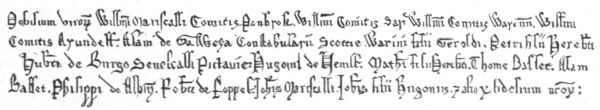 Nobilium viroꝝ Willmi Mariscalli Comitis Penbrok. Willmi Comitis Sarꝝ Willmi Comitis Waren̄. Willmi
Comitis Arundell Alani de Galweya Conſtabularii Scottie Warini filii Geroldi. Petri filii Hereb̄ti
Hub̄ti de Burgo Seneſcalli Pictavie Hugonis de Math̄i filii Hereb̄ti. Thome Baſſet. Alani
Baſſet. Philippi de Albin̄. Rob̄ti de Roppel. Joh̄is Marſcalli Joh̄is filii Hugonis. ⁊ alioꝝ fidelium nr̄oꝝ: